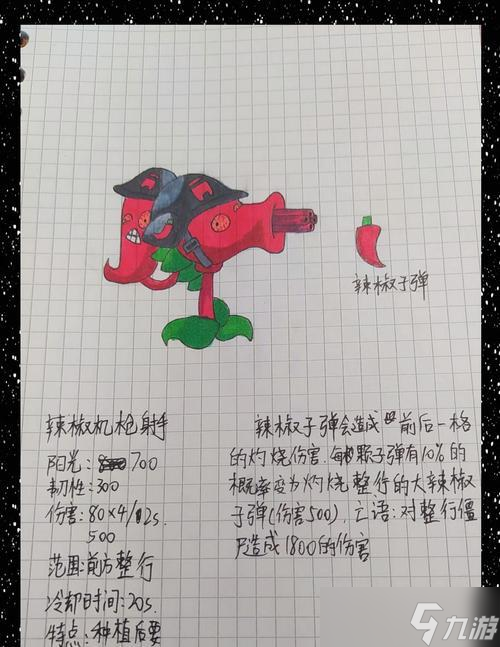 辣椒子弹
辣椒机枪射手
阳光：700
韧性：300
伤害：80×4/2s.
500
范围:前方整行
冷却时间：20s.
特点：种植后要
辣椒子弹会造成前后一格
的灼烧伤害.每颗子弹有10%的
概率变为灼烧整行的大辣椒
子弹(伤害500)，亡语：对整行僵
尸造成1800的伤害
九游